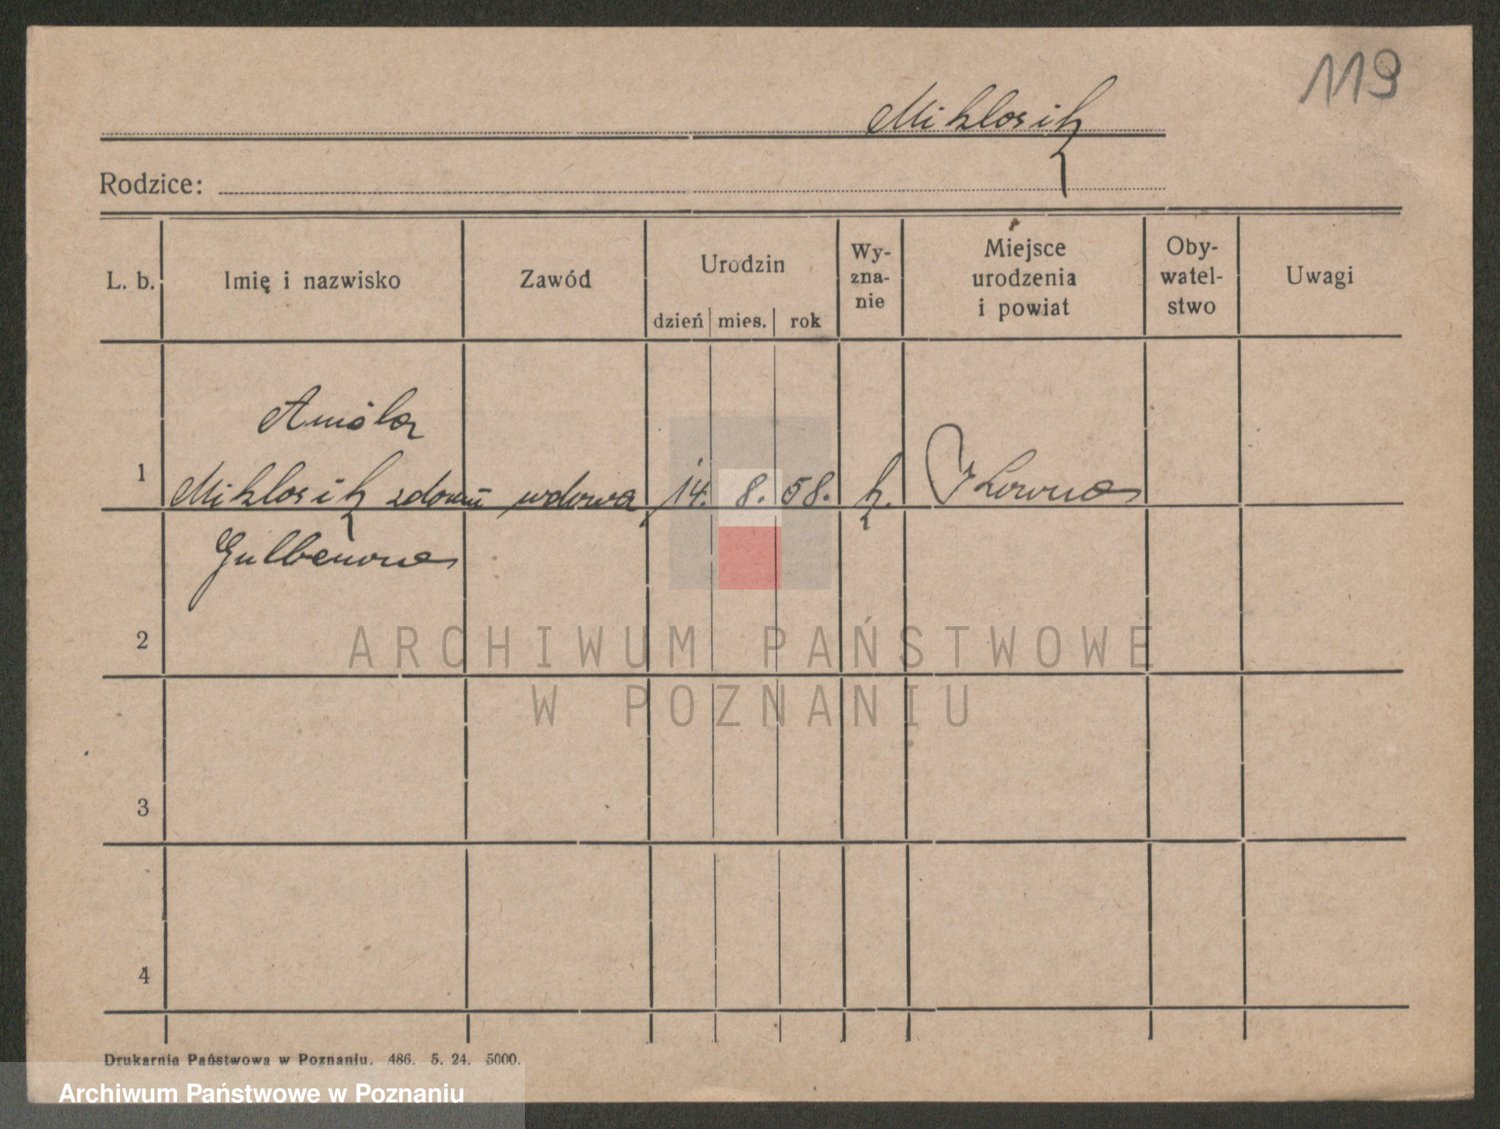 119
Miklosik
Rodzice:
L. b. Imię i nazwisko Zawód Urodzin dzień mies. rok Wy-zna-nie Miejsce urodzenia i powiat Oby-watel-stwo Uwagi
Aniela
1 Miklosik zdomu wdowa 14. 8. 58. k. Kowno
Gulbenowa
2
ARCHIWUM PAŃSTWOWE
W POZNANIU
3
4
Drukarnia Państwowa w Poznaniu. 486. 5. 24. 5000.
Archiwum Państwowe w Poznaniu